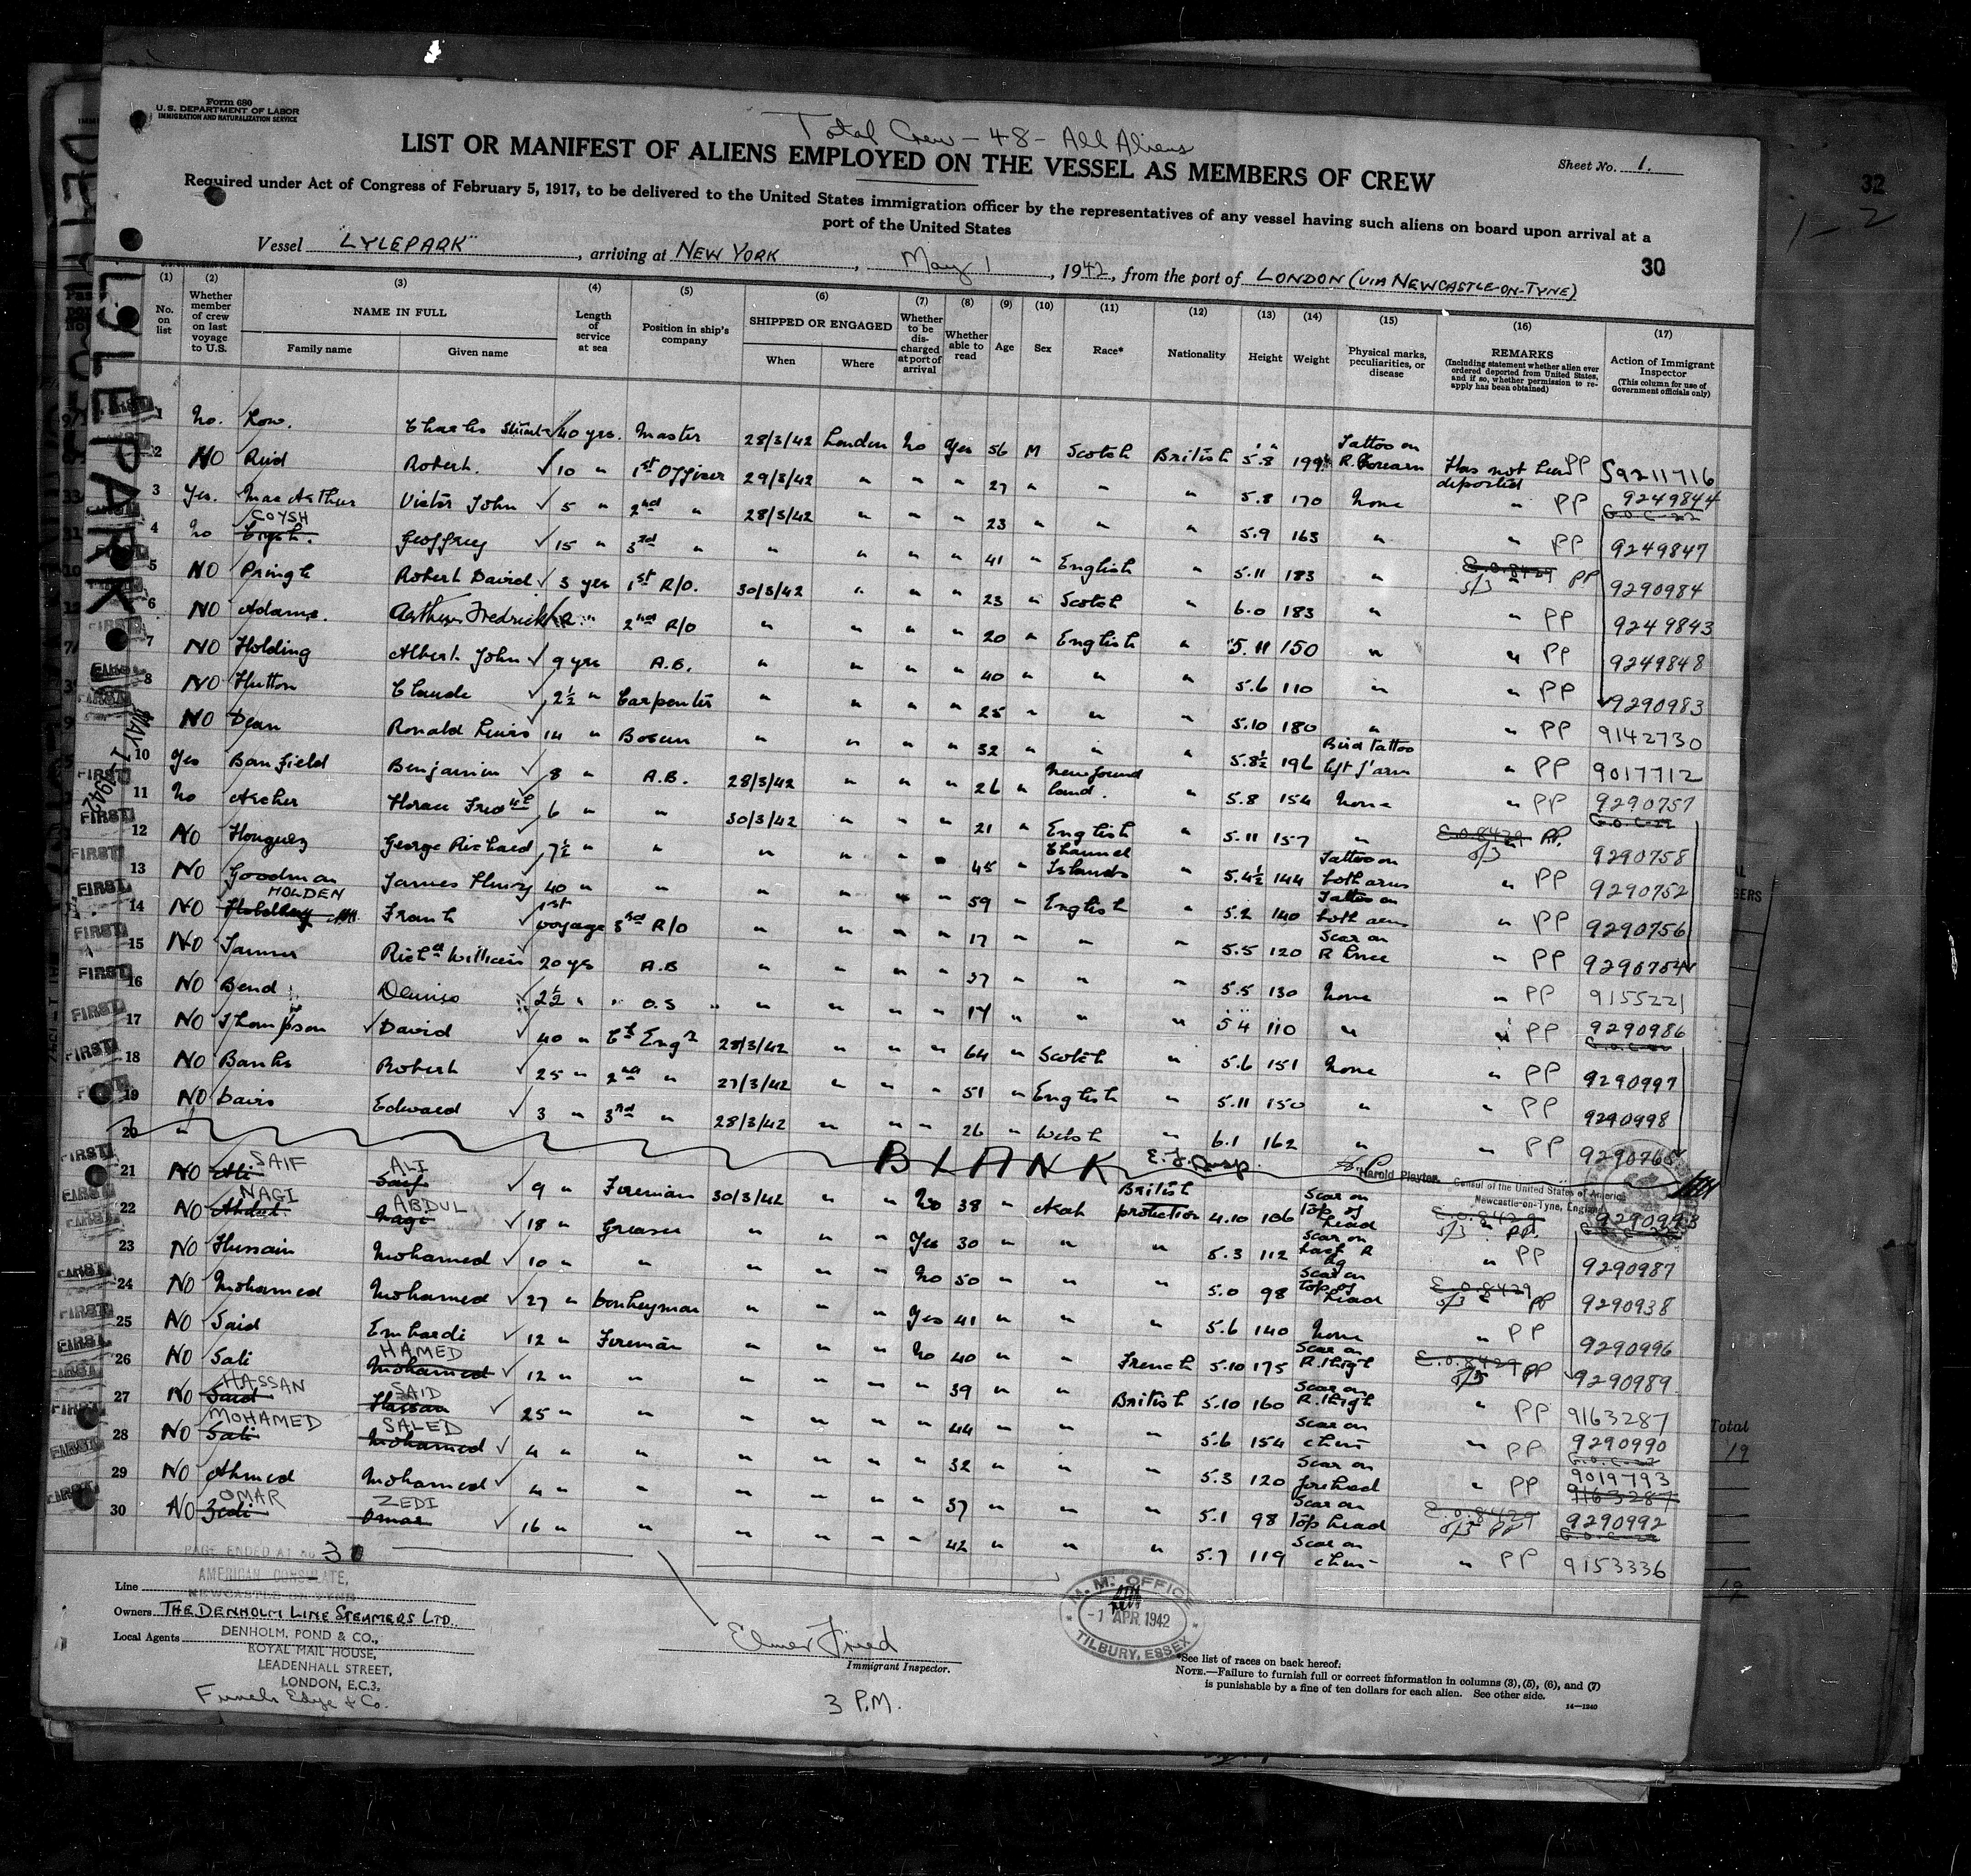 Form 680
U.S. DEPARTMENT OF LABOR
IMMIGRATION AND NATURALIZATION SERVICE
Total Crew - 48 - All Aliens
LIST OR MANIFEST OF ALIENS EMPLOYED ON THE VESSEL AS MEMBERS OF CREW
Sheet No. 1.
32
1-2
Required under Act of Congress of February 5, 1917, to be delivered to the United States immigration officer by the representatives of any vessel having such aliens on board upon arrival at a
port of the United States
Vessel "LYLEPARK", arriving at NEW YORK, May 1, 1942, from the port of LONDON (VIA NEWCASTLE-ON-TYNE)
30
LYLEPARK
MAY 1 - 1942
(1) (2) (3) (4) (5) (6) (7) (8) (9) (10) (11) (12) (13) (14) (15) (16) (17)
No. on list
Whether member of crew on last voyage to U.S.
NAME IN FULL
Family name
Given name
Length of service at sea
Position in ship's company
SHIPPED OR ENGAGED
When
Where
Whether to be discharged at port of arrival
Whether able to read
Age
Sex
Race*
Nationality
Height
Weight
Physical marks, peculiarities, or disease
REMARKS
(Including statement whether alien ever ordered deported from United States, and if so, whether permission to reapply has been obtained)
Action of Immigrant Inspector
(This column for use of Government officials only)
1 No. Low. Charles 40 yrs. Master 28/3/42 London No Yes 56 M Scotch British 5.8 199 Tattoo on R. Forearm Has not been deported PP 59211716
2 NO Reid Robert. 10 " 1st Officer 29/3/42 " " " 27 " " " 5.8 170 None " PP 9249844
3 Yes. MacArthur Victor John 5 " 2nd " 28/3/42 " " " 23 " " " 5.9 163 " " PP 9249847
4 No COYSH Geoffrey 15 " 3rd " " " " " 41 " English " 5.11 183 " E.O. 8429 5/3 " PP 9290984
5 NO Pringle Robert David 3 yrs 1st R/O. 30/3/42 " " " 23 " Scotch " 6.0 183 " " PP 9249843
6 NO Adams. Arthur Fredrick " 2nd R/O " " " " 20 " English " 5.11 150 " " PP 9249848
7 NO Holding Albert John 9 yrs A.B. " " " " 40 " " " 5.6 110 " " PP 9290983
8 NO Hutton Claude 2½ " Carpenter " " " " 25 " " " 5.10 180 " " PP 9142730
9 NO Dean Ronald Lewis 14 " Bosun " " " " 32 " " " 5.8½ 196 Bird tattoo left f'arm " PP 9017712
10 Yes Banfield Benjamin 8 " A.B. 28/3/42 " " " 26 " Newfoundland. " 5.8 154 None " PP 9290757
11 No Archer Horace Fredk 6 " " 30/3/42 " " " 21 " English " 5.11 157 " E.O. 8429 5/3 PP. 9290758
12 NO Honguez George Richard 7½ " " " " " " 45 " Channel Islands " 5.4½ 144 Tattoo on both arms " PP 9290752
13 NO Goodman James Henry 40 " " " " " " 59 " English " 5.2 140 Tattoo on both arms " PP 9290756
14 NO HOLDEN Frank 1st voyage 3rd R/O " " " " 17 " " " 5.5 120 Scar on R knee " PP 9290754
15 NO Tanner Richd William 20 yrs A.B " " " " 37 " " " 5.5 130 None " PP 9155221
16 NO Bend Dennis 2½ " O.S " " " " 17 " " " 5.4 110 " " PP 9290986
17 NO Thompson David 40 " Ch Engr 28/3/42 " " " 64 " Scotch " 5.6 151 None " PP 9290997
18 NO Banks Robert 25 " 2nd " 27/3/42 " " " 51 " English " 5.11 150 " " PP 9290998
19 NO Davis Edward 3 " 3rd " 28/3/42 " " " 26 " Welsh " 6.1 162 " " PP
20 BLANK
Harold Playter.
Consul of the United States of America
Newcastle-on-Tyne, England
21 NO Ali SAIF Saif ALI 9 " Fireman 30/3/42 " " No 38 " Arab British protection 4.10 106 Scar on top of head E.O. 8429 5/3 PP. 9290993
22 NO Abdul NAGI Nagi ABDUL 18 " Greaser " " " Yes 30 " " " 5.3 112 Scar on back R leg " PP 9290987
23 NO Hussain Mohamed 10 " " " " " No 50 " " " 5.0 98 Scar on top of head E.O. 8429 5/3 PP 9290938
24 NO Mohamed Mohamed 27 " Donkeyman " " " Yes 41 " " " 5.6 140 None " PP 9290996
25 NO Said Emhardi 12 " Fireman " " " No 40 " " French 5.10 175 Scar on R. thigh E.O. 8429 PP 9290989
26 NO Sali Mohamed HAMED 12 " " " " " " 39 " " British 5.10 160 Scar on R. thigh " PP 9163287
27 NO Said HASSAN Hassan SAID 25 " " " " " " 44 " " " 5.6 154 Scar on chest " PP 9290990
28 NO Sali MOHAMED Mohamed SALED 4 " " " " " " 32 " " " 5.3 120 Scar on forehead " PP 9019793 9163287
29 NO Ahmed Mohamed 4 " " " " " " 37 " " " 5.1 98 Scar on top head E.O. 8429 5/3 PP 9290992
30 NO Zedi OMAR Omar ZEDI 16 " " " " " " 42 " " " 5.7 119 Scar on chest " PP 9153336
PAGE ENDED AT No 30
AMERICAN CONSULATE,
NEWCASTLE-ON-TYNE
Line
Owners THE DENHOLM LINE STEAMERS LTD.
Local Agents
DENHOLM, POND & CO.,
ROYAL MAIL HOUSE,
LEADENHALL STREET,
LONDON, E.C.3.
Funch Edye & Co.
Elmer Fried
Immigrant Inspector.
3 P.M.
M.M. OFFICE
-1 APR 1942
TILBURY, ESSEX
*See list of races on back hereof.
NOTE.—Failure to furnish full or correct information in columns (3), (5), (6), and (7)
is punishable by a fine of ten dollars for each alien. See other side.
14—1240
Total
19